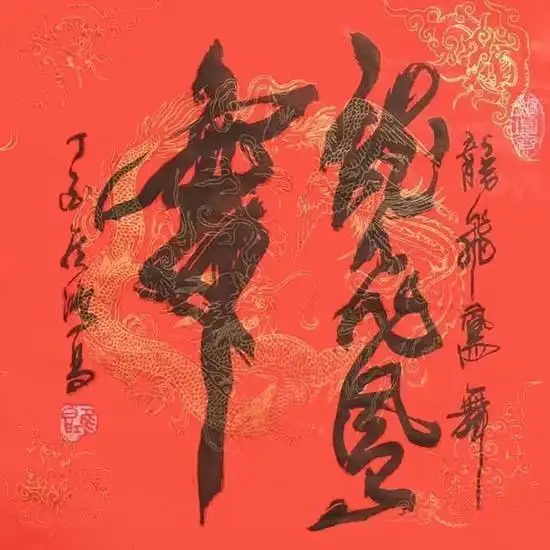 龍飛鳳舞
龍飛鳳
舞
丁酉